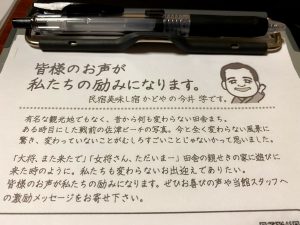 皆様のお声が
私たちの励みになります。
民宿美味し宿かどやの今井 学です。
有名な観光地でもなく、昔から何も変わらない田舎まち、
ある時目にした戦前の佐津ビーチの写真。今と全く変わらない風景に
驚き、変わっていないことがむしろすごいことじゃないかって思いました。
「大将、また来たで」「女将さん、ただいまー」田舎の親せきの家に遊びに
来た時のように。私たちも変わらないお出迎えでありたい。
皆様のお声が私たちの励みになります。ぜひお喜びの声や当館スタッフへ
の激励メッセージをお寄せ下さい。